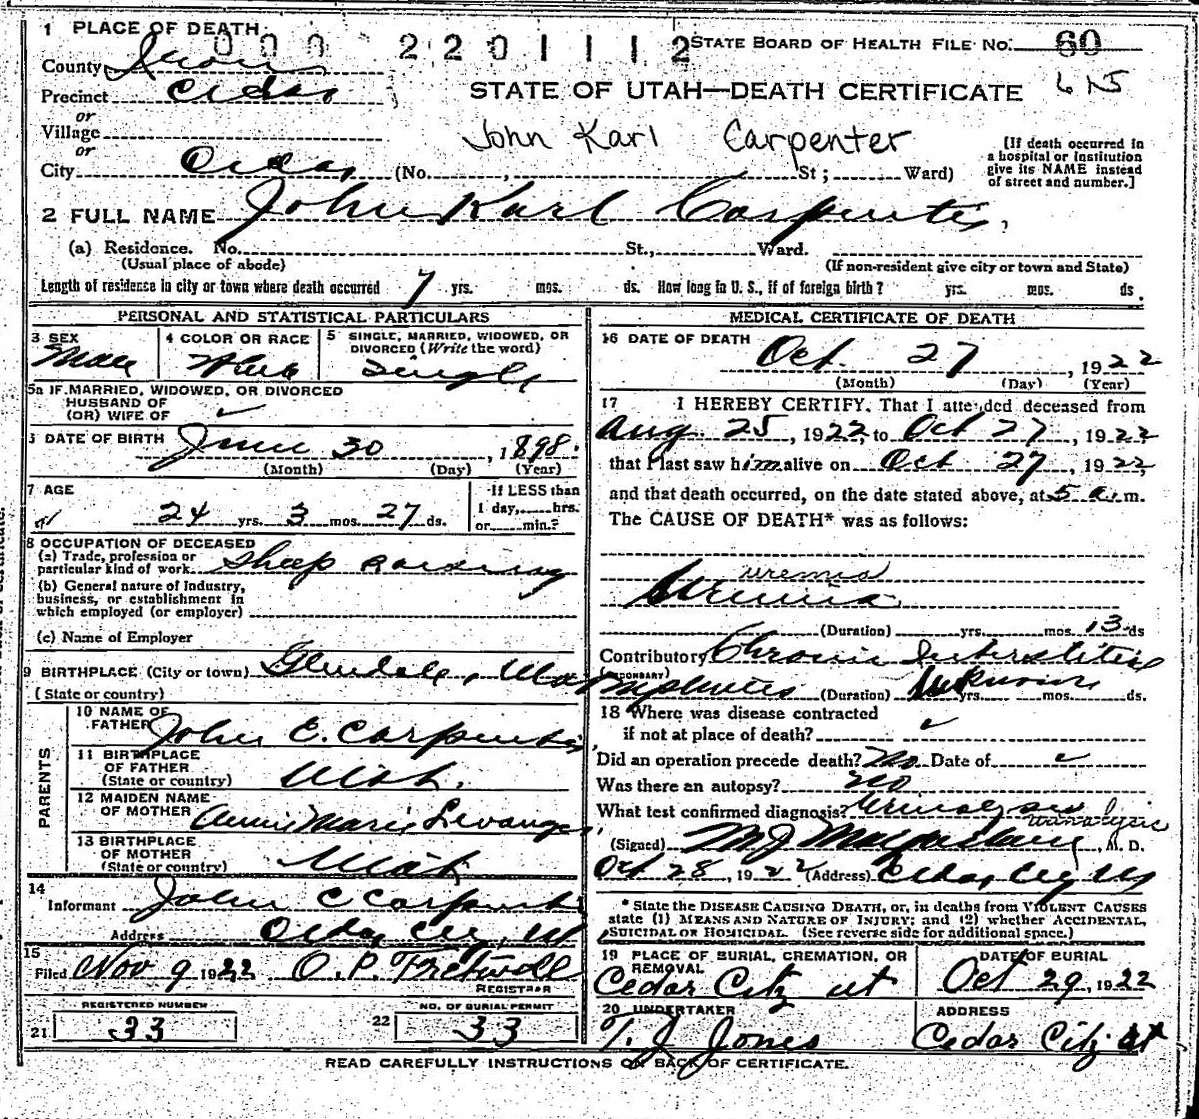 1 PLACE OF DEATH
000 2201112 STATE BOARD OF HEALTH FILE No. 60
County Iron
Precinct Cedar
615
STATE OF UTAH—DEATH CERTIFICATE
or
Village
John Karl Carpenter
or
City Cedar (No. , St ; Ward)
[If death occurred in
a hospital or institution
give its NAME instead
of street and number.]
2 FULL NAME John Karl Carpenter
(a) Residence. No. St., Ward.
(Usual place of abode) (If non-resident give city or town and State)
Length of residence in city or town where death occurred 7 yrs. mos. ds. How long in U. S., if of foreign birth? yrs. mos. ds.
PERSONAL AND STATISTICAL PARTICULARS
3 SEX
Male
4 COLOR OR RACE
White
5 SINGLE, MARRIED, WIDOWED, OR
DIVORCED (Write the word)
Single
5a IF MARRIED, WIDOWED, OR DIVORCED
HUSBAND OF
(OR) WIFE OF
DATE OF BIRTH June 30, 1898.
(Month) (Day) (Year)
7 AGE
24 yrs. 3 mos. 27 ds.
If LESS than
1 day, hrs.
or min.?
8 OCCUPATION OF DECEASED
(a) Trade, profession or
particular kind of work Sheep
(b) General nature of industry,
business, or establishment in
which employed (or employer)
(c) Name of Employer
9 BIRTHPLACE (City or town) Glendale, Utah
(State or country)
PARENTS
10 NAME OF
FATHER John C. Carpenter
11 BIRTHPLACE
OF FATHER
(State or country) Utah.
12 MAIDEN NAME
OF MOTHER Annie Marie Levanger
13 BIRTHPLACE
OF MOTHER
(State or country) Utah
14
Informant John C Carpenter
Address Cedar City, Ut
15
Filed Nov 9 1922 O. P. Fretwell
REGISTRAR
REGISTERED NUMBER
21 33
NO. OF BURIAL PERMIT
22 33
MEDICAL CERTIFICATE OF DEATH
16 DATE OF DEATH
Oct. 27, 1922
(Month) (Day) (Year)
17 I HEREBY CERTIFY, That I attended deceased from
Aug 25, 1922, to Oct 27, 1922
that I last saw him alive on Oct 27, 1922,
and that death occurred, on the date stated above, at 5 a. m.
The CAUSE OF DEATH* was as follows:
uremia
Uremia
(Duration) yrs. mos. 13 ds
Contributory Chronic Interstitial
(SECONDARY)
Nephritis (Duration) Unknown yrs. mos. ds.
18 Where was disease contracted
if not at place of death?
Did an operation precede death? No Date of
Was there an autopsy? No
What test confirmed diagnosis? Urinalysis
urinalysis
(Signed) M. J. Macfarlane, M. D.
Oct 28, 1922 (Address) Cedar City Ut
* State the DISEASE CAUSING DEATH, or, in deaths from VIOLENT CAUSES
state (1) MEANS AND NATURE OF INJURY; and (2) whether ACCIDENTAL,
SUICIDAL OR HOMICIDAL. (See reverse side for additional space.)
19 PLACE OF BURIAL, CREMATION, OR
REMOVAL
Cedar City ut
DATE OF BURIAL
Oct 29, 1922
20 UNDERTAKER
T. J. Jones
ADDRESS
Cedar City ut
READ CAREFULLY INSTRUCTIONS ON BACK OF CERTIFICATE.